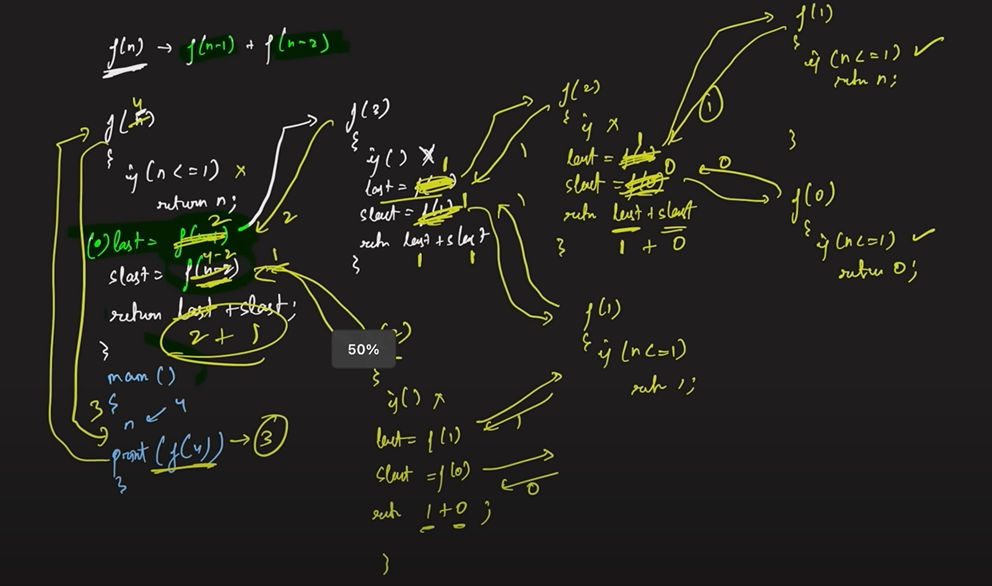 f(n) → f(n-1) + f(n-2)
f(4)
{
if (n <= 1) x
return n;
(0) last = 2
slast = f(n-2) 4-2 1
return last + slast;
2 + 1
}
main ()
{
n ← 4
print (f(4)) → 3
}
3
f(3)
{
if () x
last = 1
slast = f(1) 1
retn last + slast
1 1
}
2
f(2)
{ if x
last = 1
slast = f(0) 0
retn last + slast
1 + 0
}
1
f(1)
{
if (n <= 1) ✓
retn n;
}
1
0
f(0)
{
if (n <= 1) ✓
retn 0;
1
f(1)
{ if (n <= 1)
retn 1;
50%
{
if () x
last = f(1)
1
slast = f(0)
0
retn 1 + 0 ;
}